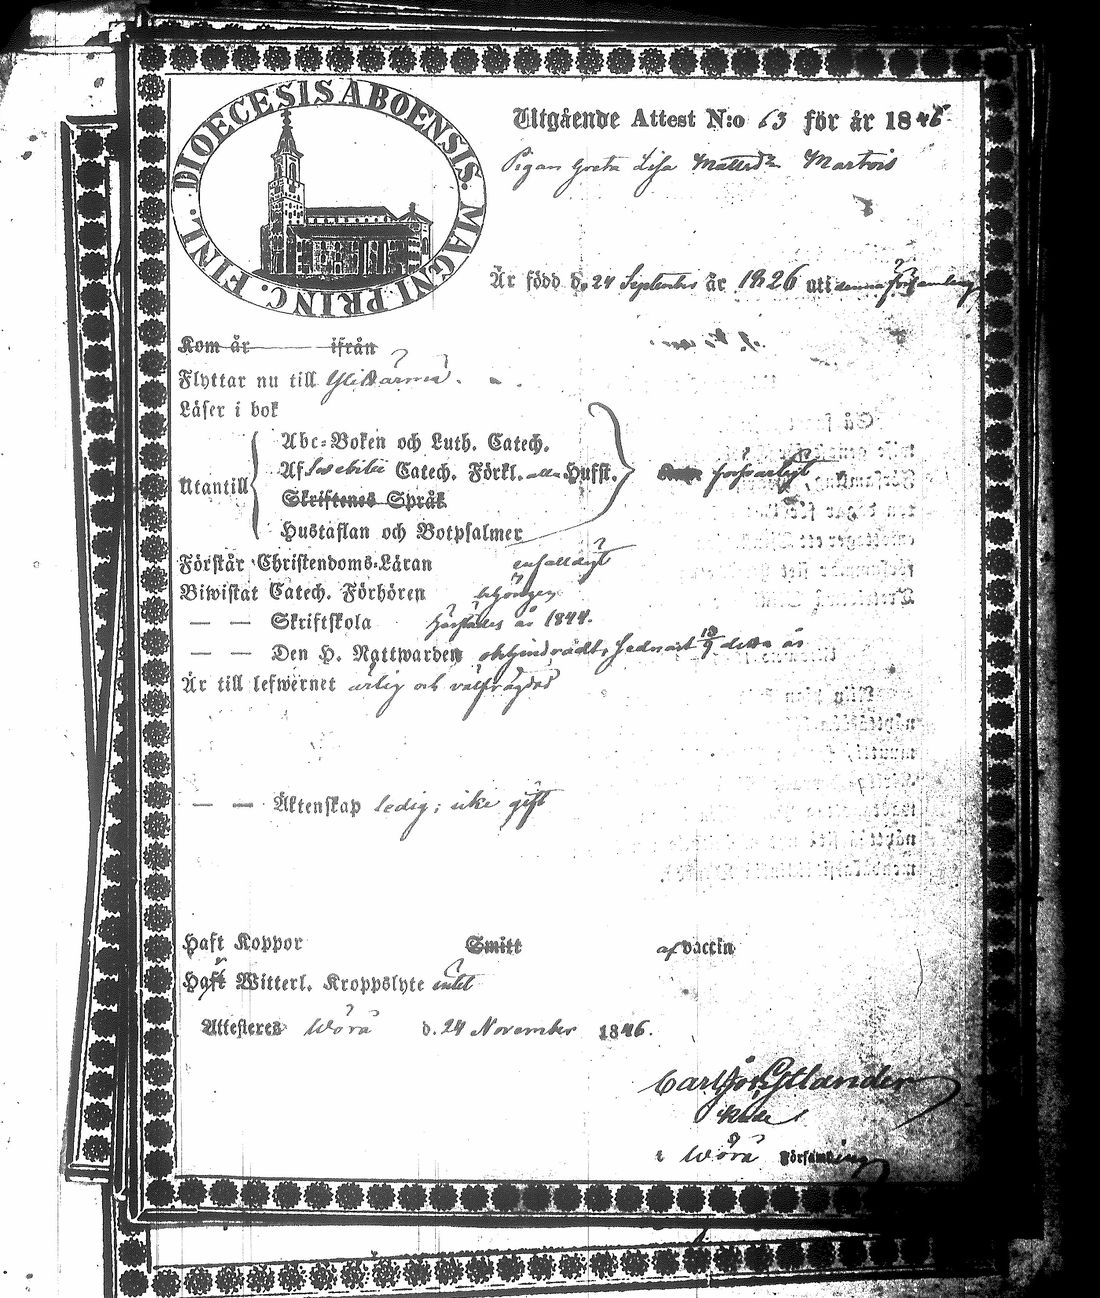 DIOECESIS ABOENSIS. MAGNI PRINC. FINL.
Utgående Attest N:o 63 för år 1846
Pigan Greta Lisa Mattsdr Martois
Är född d. 24 September år 1826 uti denna församling
Kom år ifrån
Flyttar nu till Ylikärmä.
Läser i bok
Utantill
Abc-Boken och Luth. Catech.
Af Svebilii Catech. Förkl. Husst.
Skriftenes Språk
försvarligt
Hustaflan och Botpsalmer
Förstår Christendoms-Läran enfaldigt
Biwistat Catech. Förhören
— — Skriftskola härstädes år 1844.
— — Den H. Nattwarden ohindradt, sednast detta år
Är till lefwernet ärlig och välfrägdad
— — Äktenskap ledig; icke gift
Haft Koppor Smitt af vaccin
Haft Witterl. Kroppslyte intet
Attesteras Wörå d. 24 November 1846.
Carl
i Wörå Församling